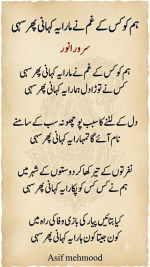 ہم کو کس کے غم نے مارا یہ کہانی پھر سہی
سرور انور
ہم کو کس کے غم نے مارا یہ کہانی پھر سہی
کس نے توڑا دل ہمارا یہ کہانی پھر سہی
دل کے لٹنے کا سبب پوچھو نہ سب کے سامنے
نام آئے گا تمہارا یہ کہانی پھر سہی
نفرتوں کے تیر کھا کر دوستوں کے شہر میں
ہم نے کس کس کو پکارا یہ کہانی پھر سہی
کیا بتائیں پیار کی بازی وفا کی راہ میں
کون جیتا کون ہارا یہ کہانی پھر سہی
Asif mehmood